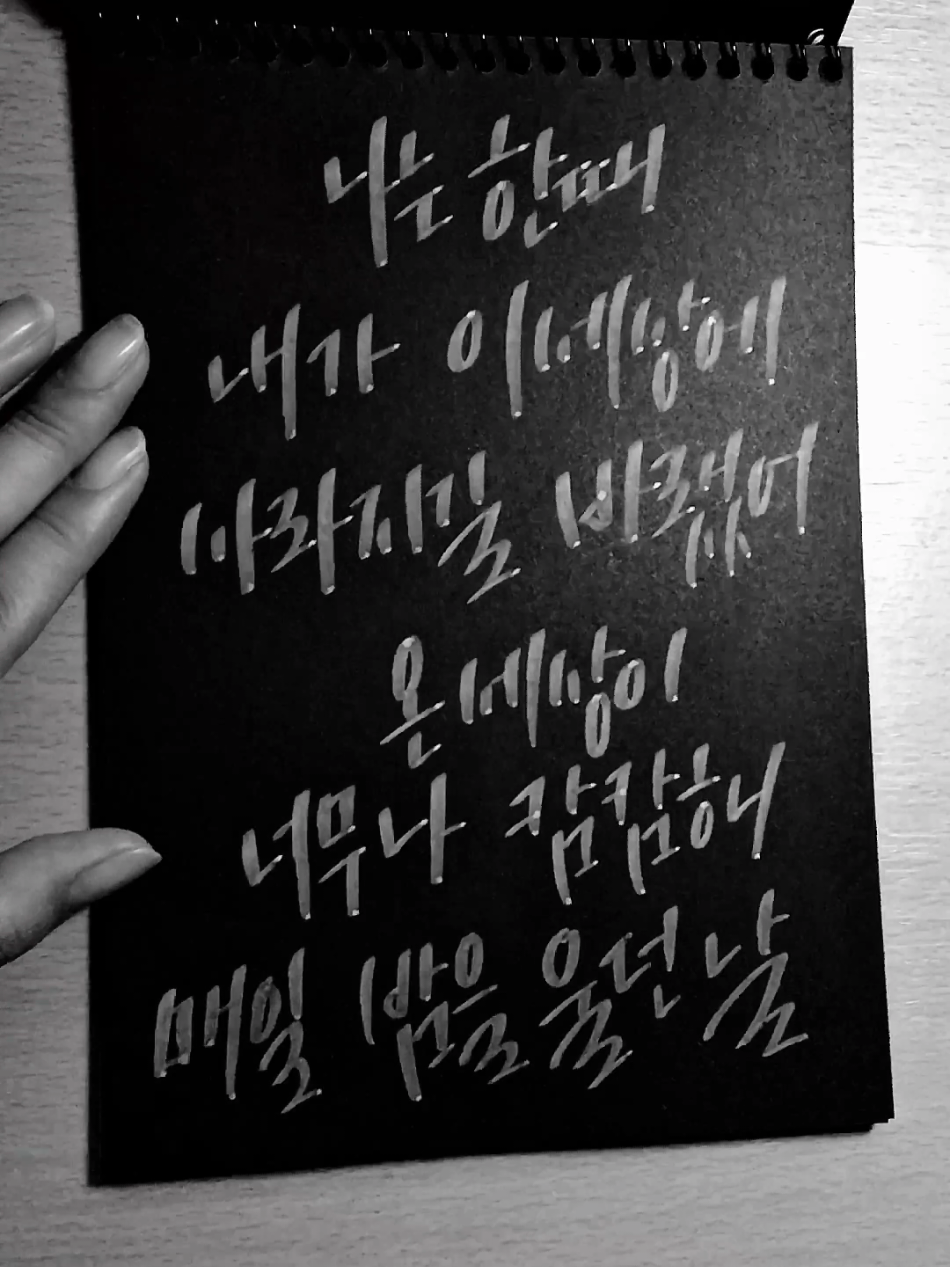 나는 한때
내가 이 세상에
사라지길 바랬어
온 세상이
너무나 캄캄해
매일 밤을 울던 날